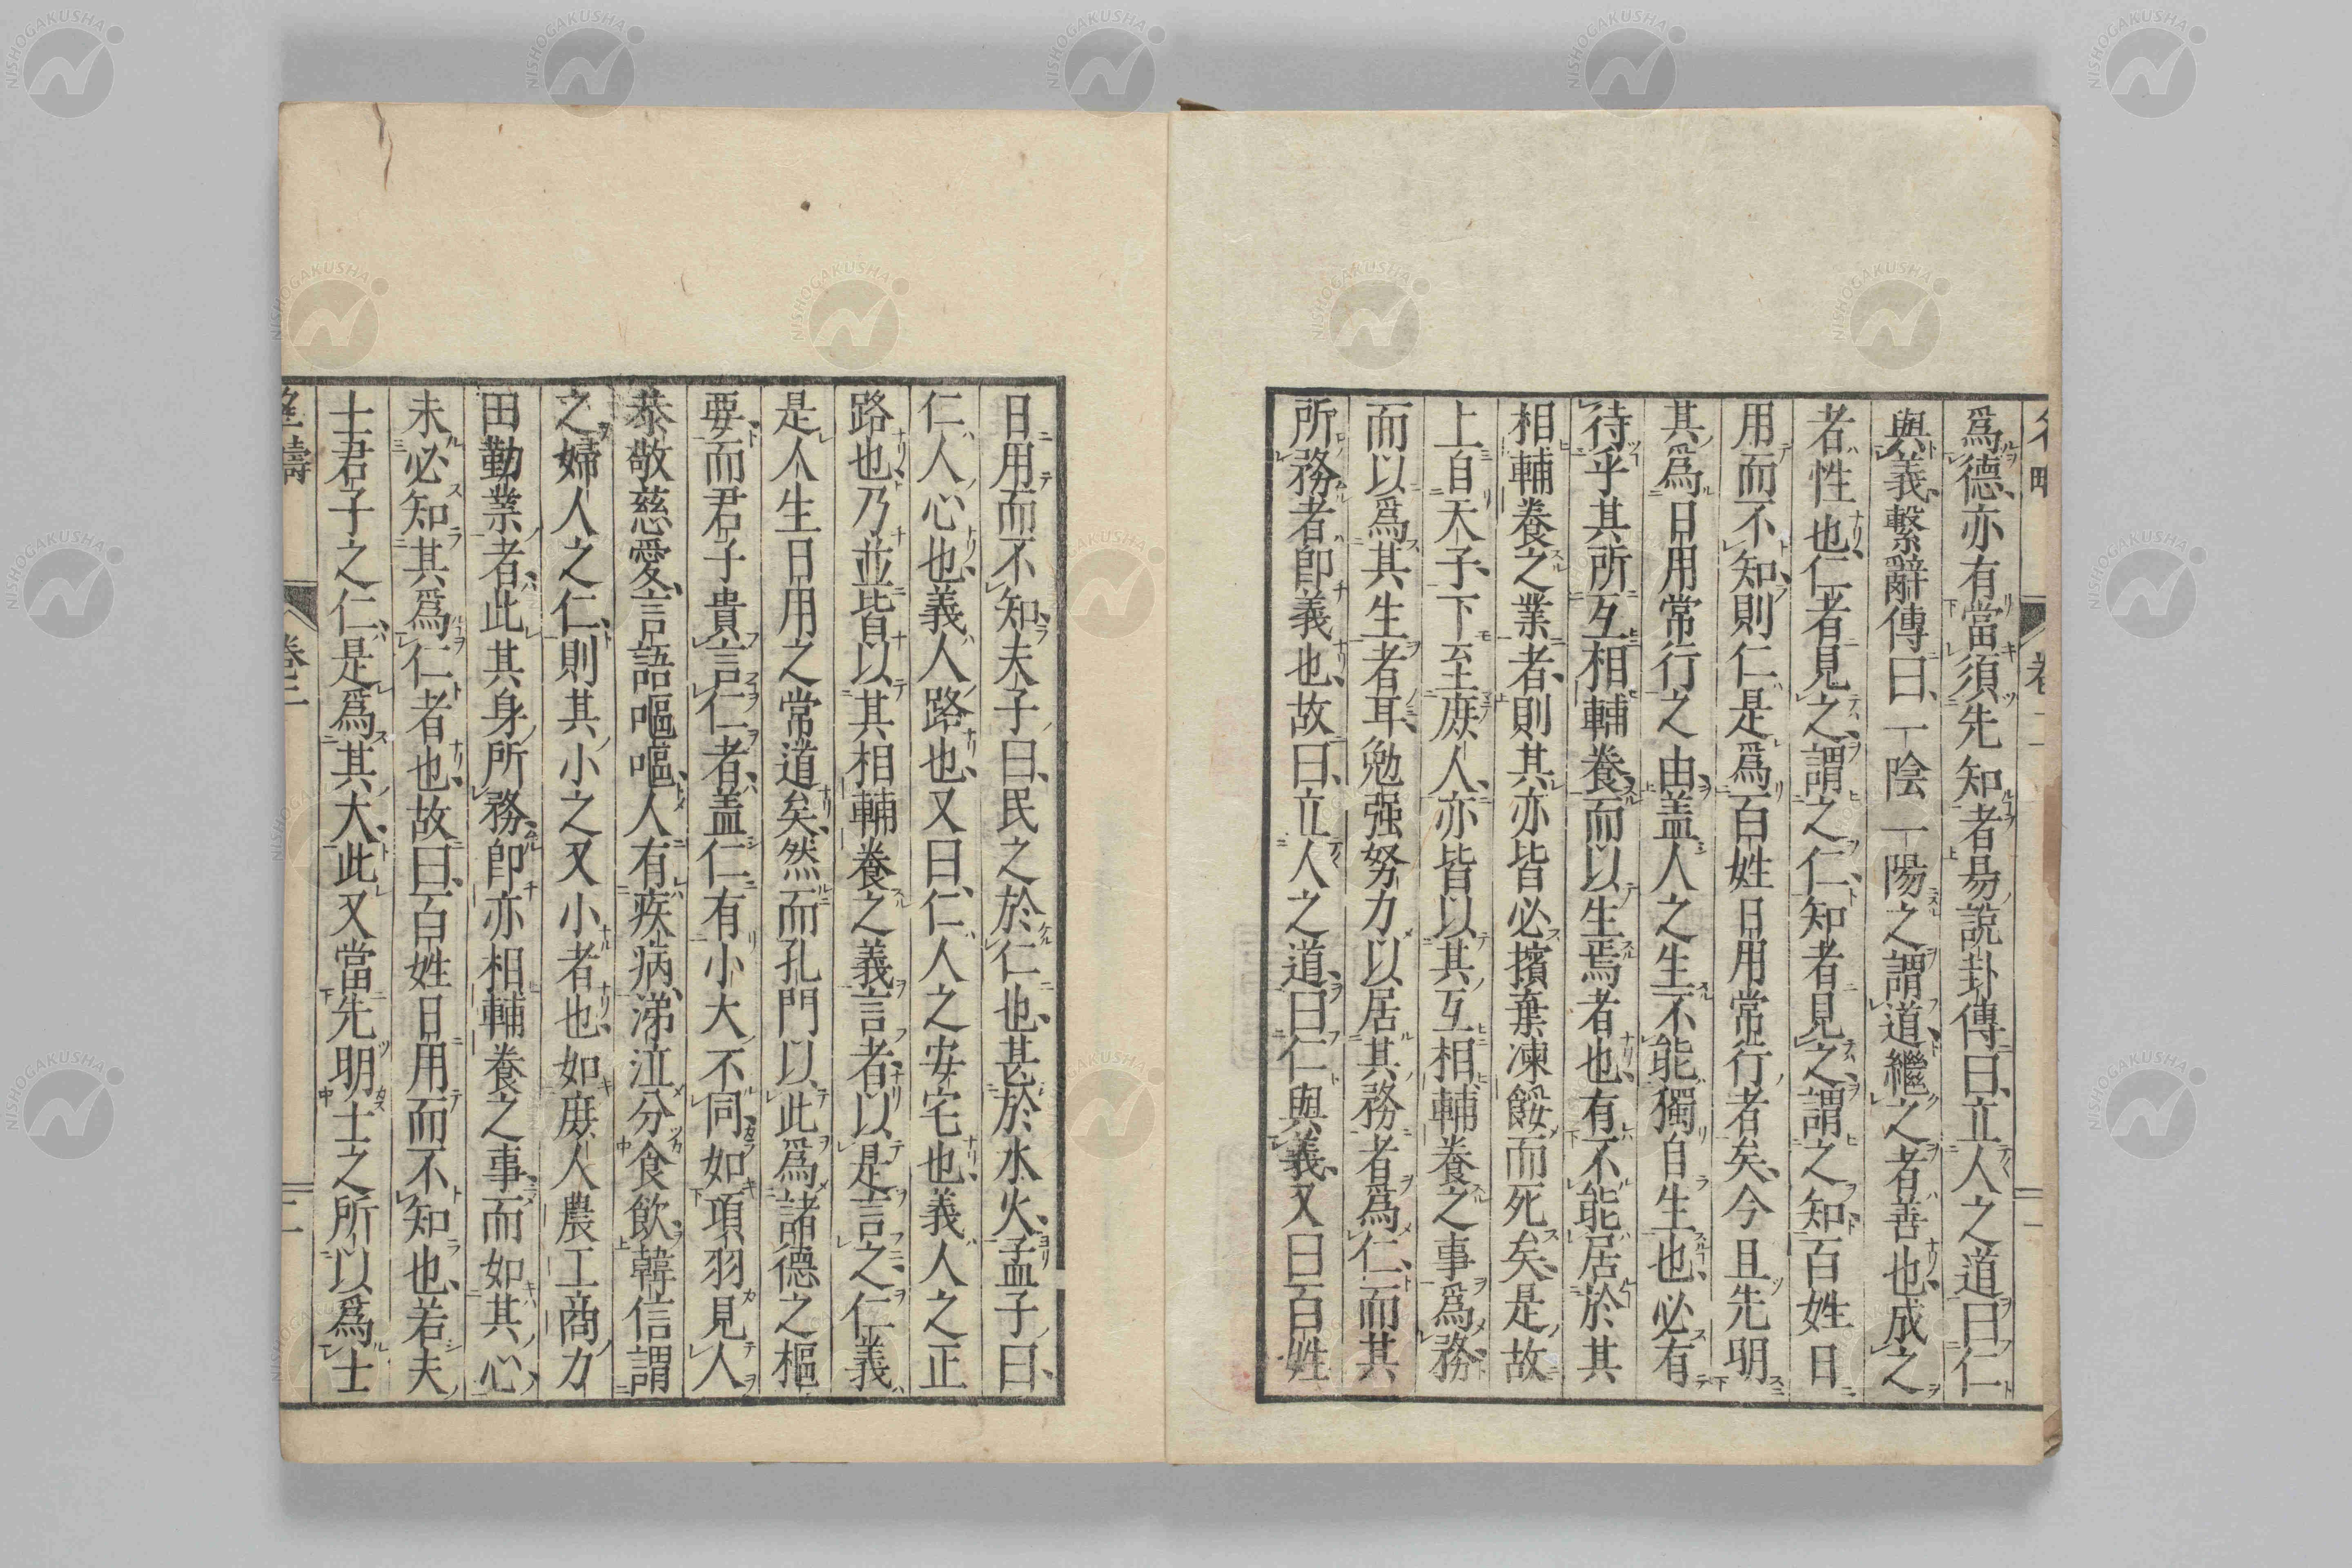 爲德、亦有當須先知者易說卦傳曰、立人之道曰仁
與義、繫辭傳曰、一陰一陽之謂道、繼之者善也、成之
者性也、仁者見之、謂之仁、知者見之、謂之知、百姓日
用而不知、則仁是爲百姓日用常行者矣、今且先明
其爲日用常行之由、蓋人之生不能獨自生也、必有
待乎其所互相輔養而以生焉者也、有不能居於其
相輔養之業者、則其亦皆必擯棄凍餒而死矣、是故
上自天子、下至庶人、亦皆以其互相輔養之事爲務
而以爲其生者耳、勉强努力以居其務者爲仁、而其
所務者卽義也、故曰、立人之道、曰仁與義、又曰百姓
日用而不知、夫子曰、民之於仁也、甚於水火、孟子曰、
仁人心也、義人路也、又曰、仁人之安宅也、義人之正
路也、乃並皆以其相輔養之義言者、以是言之、仁義
是人生日用之常道矣、然而孔門以此爲諸德之樞
要、而君子貴言仁者、蓋仁有小大不同、如項羽見人
恭敬慈愛、言語嘔嘔、人有疾病、涕泣分食飲、韓信謂
之婦人之仁、則其小之又小者也、如庶人農工商力
田勤業者、此其身所務、卽亦相輔養之事、而如其心、
未必知其爲仁者也、故曰、百姓日用而不知也、若夫
士君子之仁、是爲其大、此又當先明士之所以爲士
卷二
二